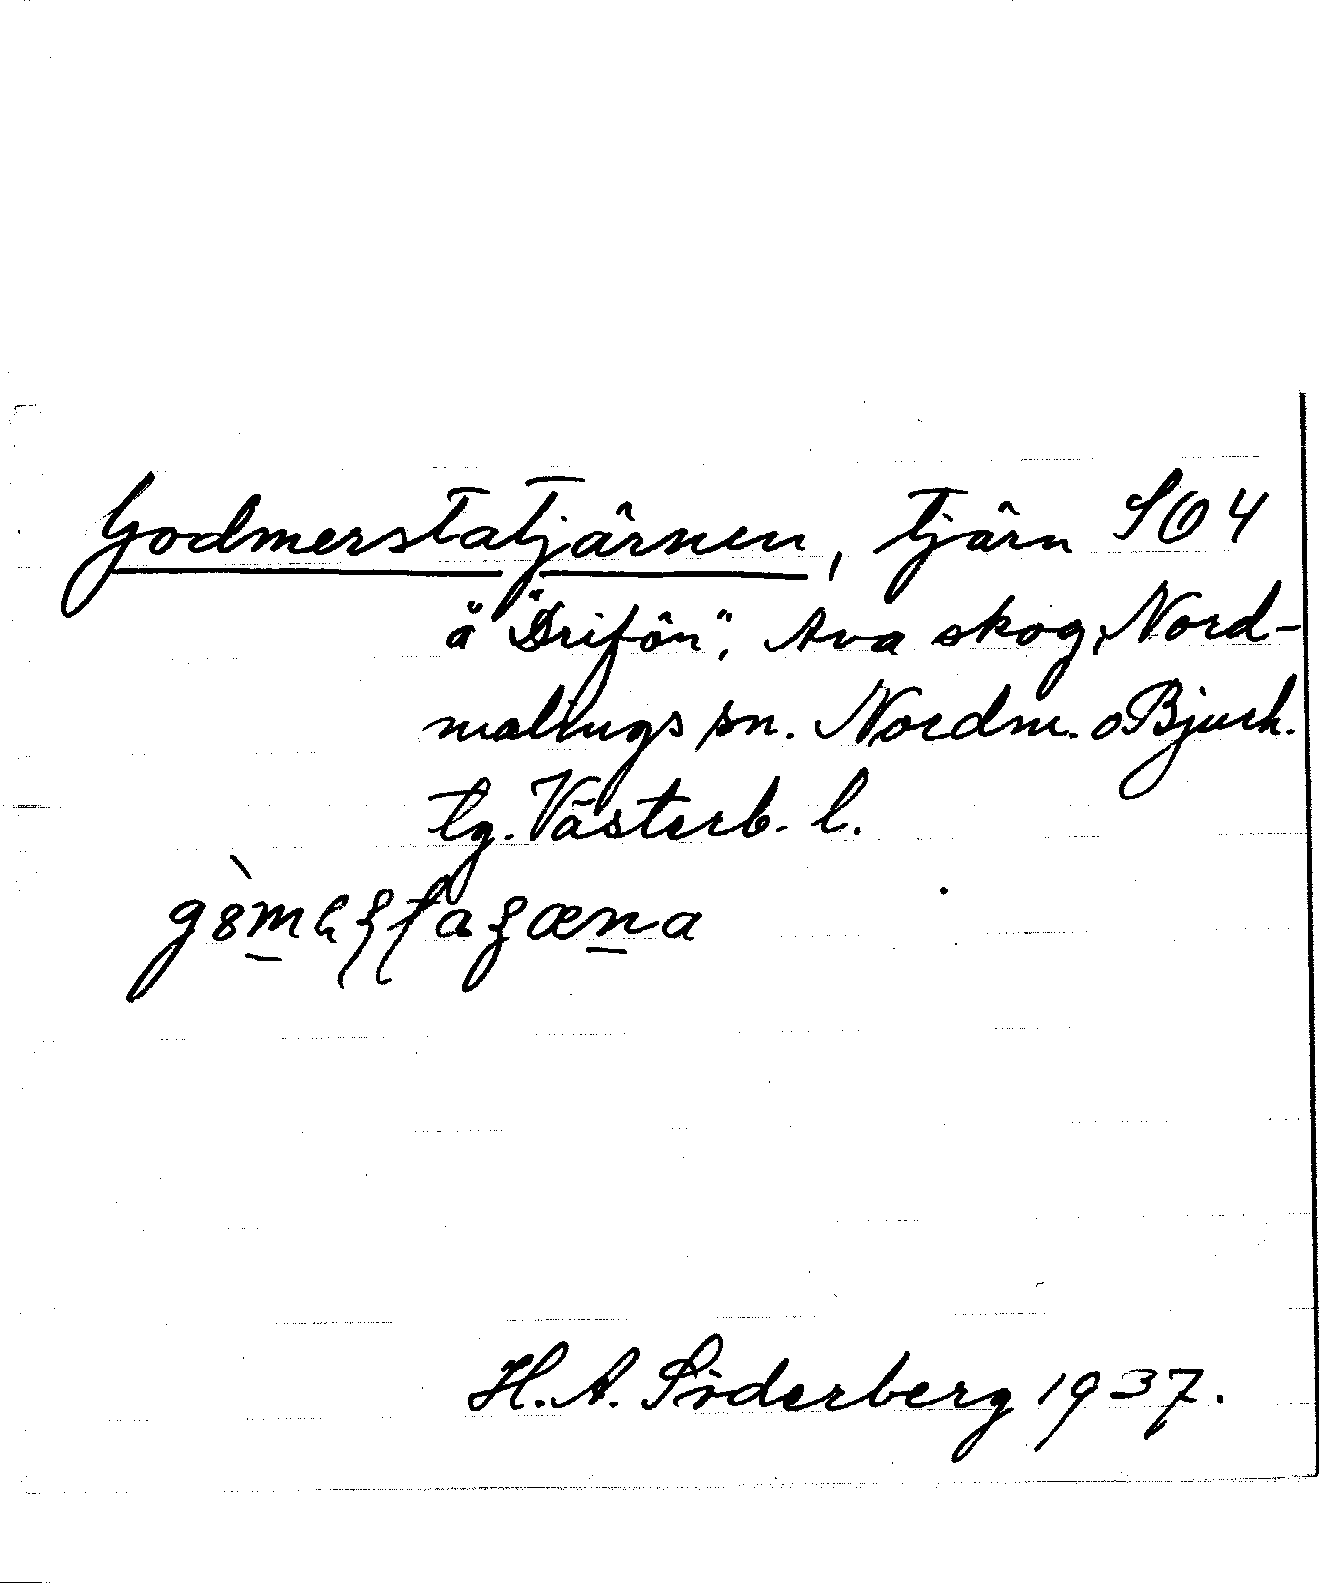 Godmerstatjärnen, tjärn SO4
å "Drifön", Ava skog, Nord-
malings sn. Nordm. o Bjurh.
tg. Västerb. l.
H. A. Söderberg 1937.